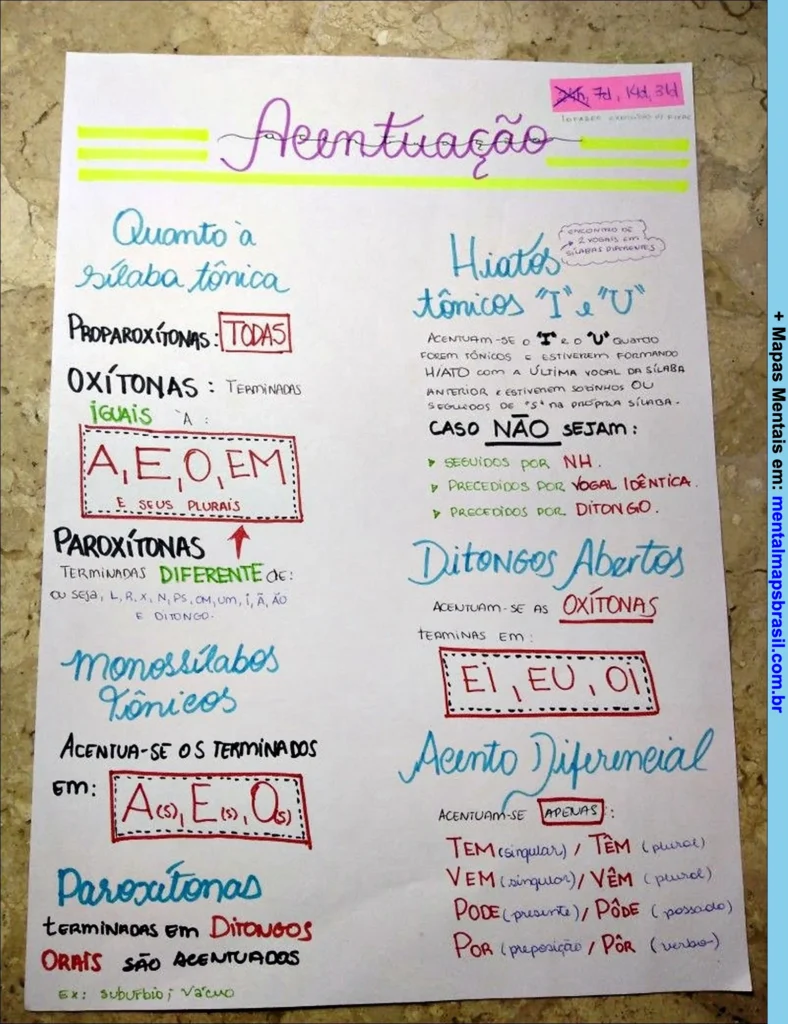 24h, 7d, 14d, 31d
Acentuação
Quanto à
sílaba tônica
PROPAROXÍTONAS: TODAS
OXÍTONAS: TERMINADAS
iGUAIS À:
A, E, O, EM
E SEUS PLURAIS
PAROXÍTONAS
TERMINADAS DIFERENTE de:
OU SEJA, L, R, X, N, PS, OM, UM, I, Ã, ÃO
E DITONGO.
Monossílabos
Tônicos
ACENTUA-SE OS TERMINADOS
EM: A(S), E(S), O(S)
Paroxítonas
TERMINADAS EM DITONGOS
ORAIS SÃO ACENTUADOS
EX: SUBÚRBIO; VÁCUO
Hiatos
ENCONTRO DE
2 VOGAIS EM
SÍLABAS DIFERENTES
tônicos "I" e "U"
ACENTUAM-SE O "I" E O "U" QUANDO
FOREM TÔNICOS E ESTIVEREM FORMANDO
HIATO COM A ÚLTIMA VOGAL DA SÍLABA
ANTERIOR E ESTIVEREM SOZINHOS OU
SEGUIDOS DE "S" NA PRÓPRIA SÍLABA.
CASO NÃO SEJAM:
SEGUIDOS POR NH.
PRECEDIDOS POR VOGAL IDÊNTICA.
PRECEDIDOS POR DITONGO.
Ditongos Abertos
ACENTUAM-SE AS OXÍTONAS
TERMINAS EM:
EI, EU, OI
Acento Diferencial
ACENTUAM-SE APENAS:
TEM (singular) / TÊM (plural)
VEM (singular) / VÊM (plural)
PODE (presente) / PÔDE (passado)
POR (preposição / PÔR (verbo)
+ Mapas Mentais em: mentalmapsbrasil.com.br